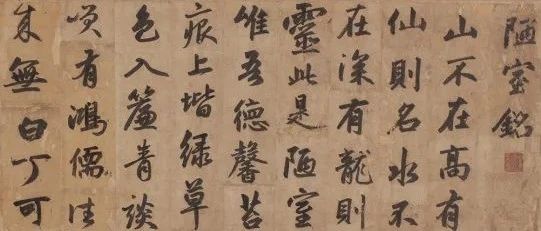 陋室銘
山不在高有
仙則名水不
在深有龍則
靈此是陋室
惟吾德馨苔
痕上堦綠草
色入簾青談
咲有鴻儒往
來無白丁可